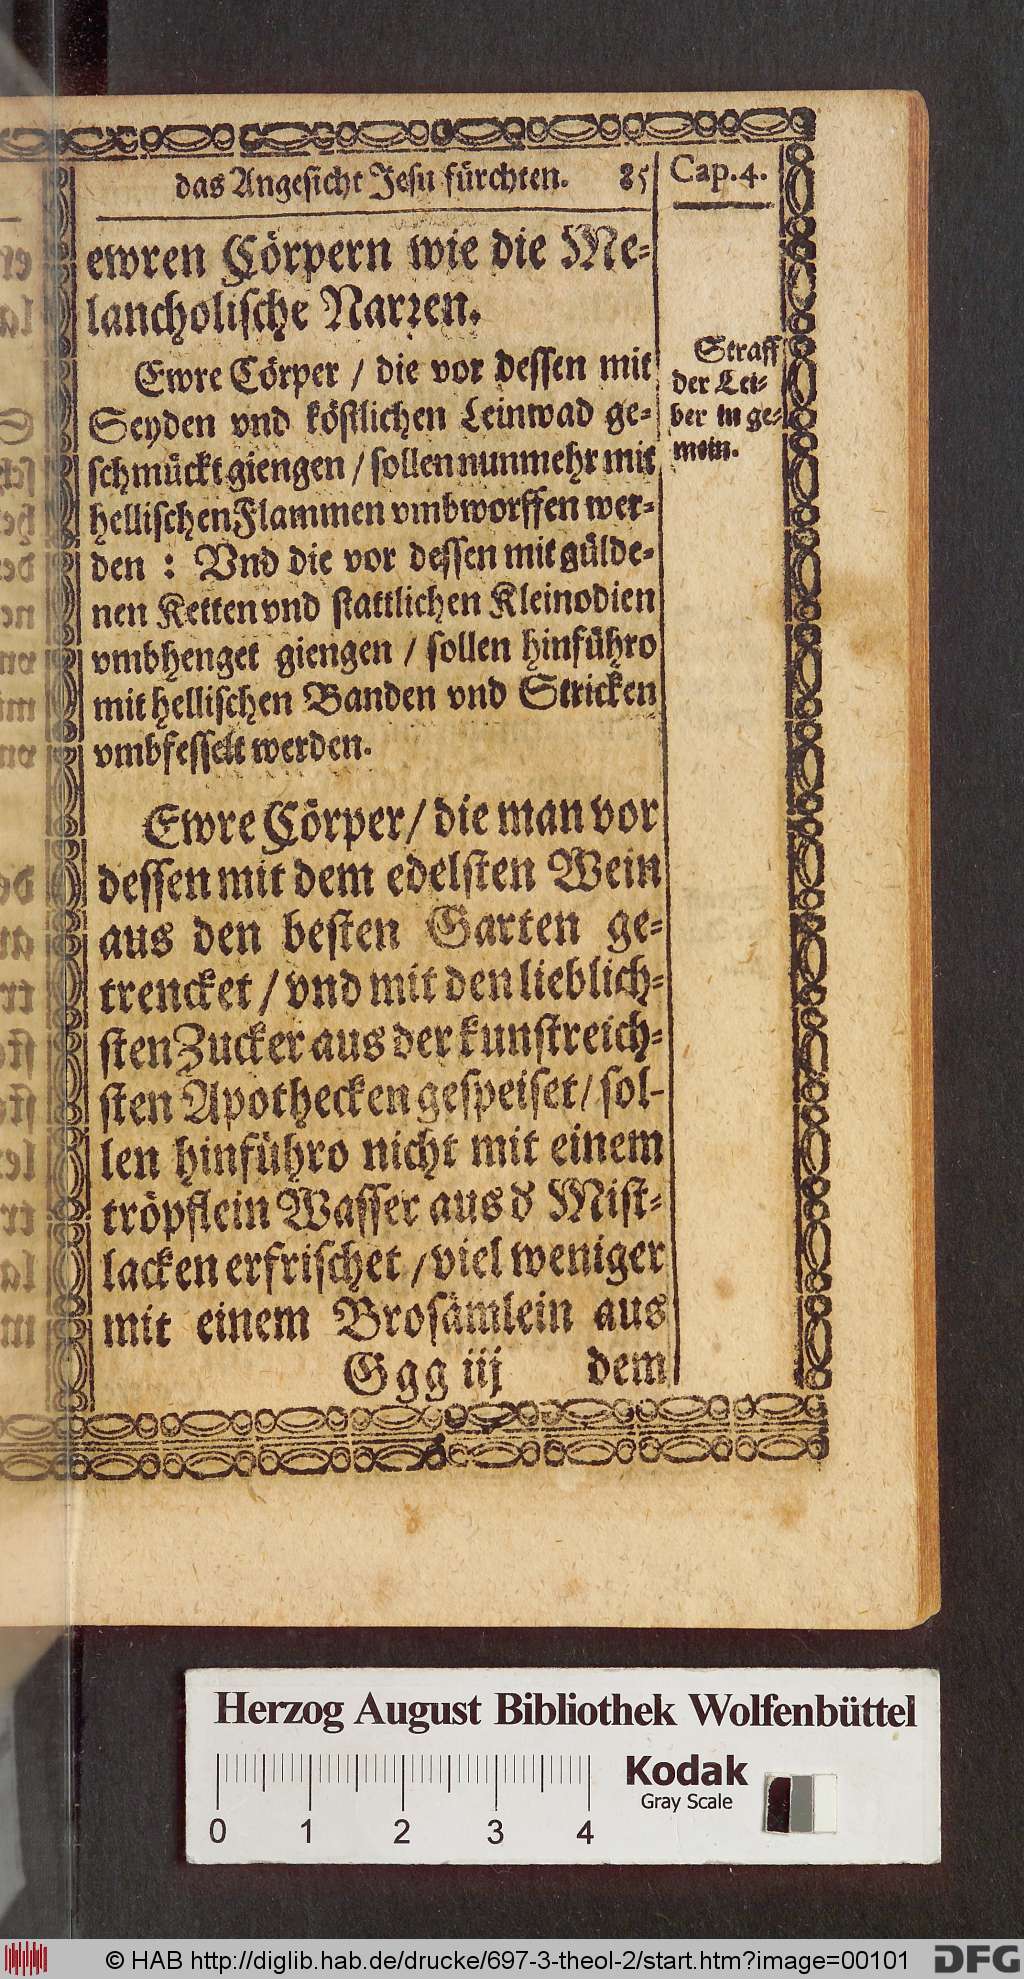 das Angesicht Jesu fürchten. 85
Cap. 4.
ewren Cörpern wie die Me⸗
lancholische Narren.
Ewre Cörper / die vor dessen mit
Seyden vnd köstlichen Leinwad ge⸗
schmückt giengen / sollen nunmehr mit
hellischen Flammen vmbworffen wer⸗
den : Vnd die vor dessen mit gülde⸗
nen Ketten vnd stattlichen Kleinodien
vmbhenget giengen / sollen hinführo
mit hellischen Banden vnd Stricken
vmbfesselt werden.
Straff
der Lei⸗
ber in ge⸗
mein.
Ewre Cörper / die man vor
dessen mit dem edelsten Wein
aus den besten Garten ge⸗
trencket / vnd mit den lieblich⸗
sten Zucker aus der kunstreich⸗
sten Apothecken gespeiset / sol⸗
len hinführo nicht mit einem
tröpflein Wasser aus d Mist⸗
lacken erfrischet / viel weniger
mit einem Brosämlein aus
Ggg iij dem
Herzog August Bibliothek Wolfenbüttel
Kodak
Gray Scale
0 1 2 3 4
© HAB http://diglib.hab.de/drucke/697-3-theol-2/start.htm?image=00101
DFG